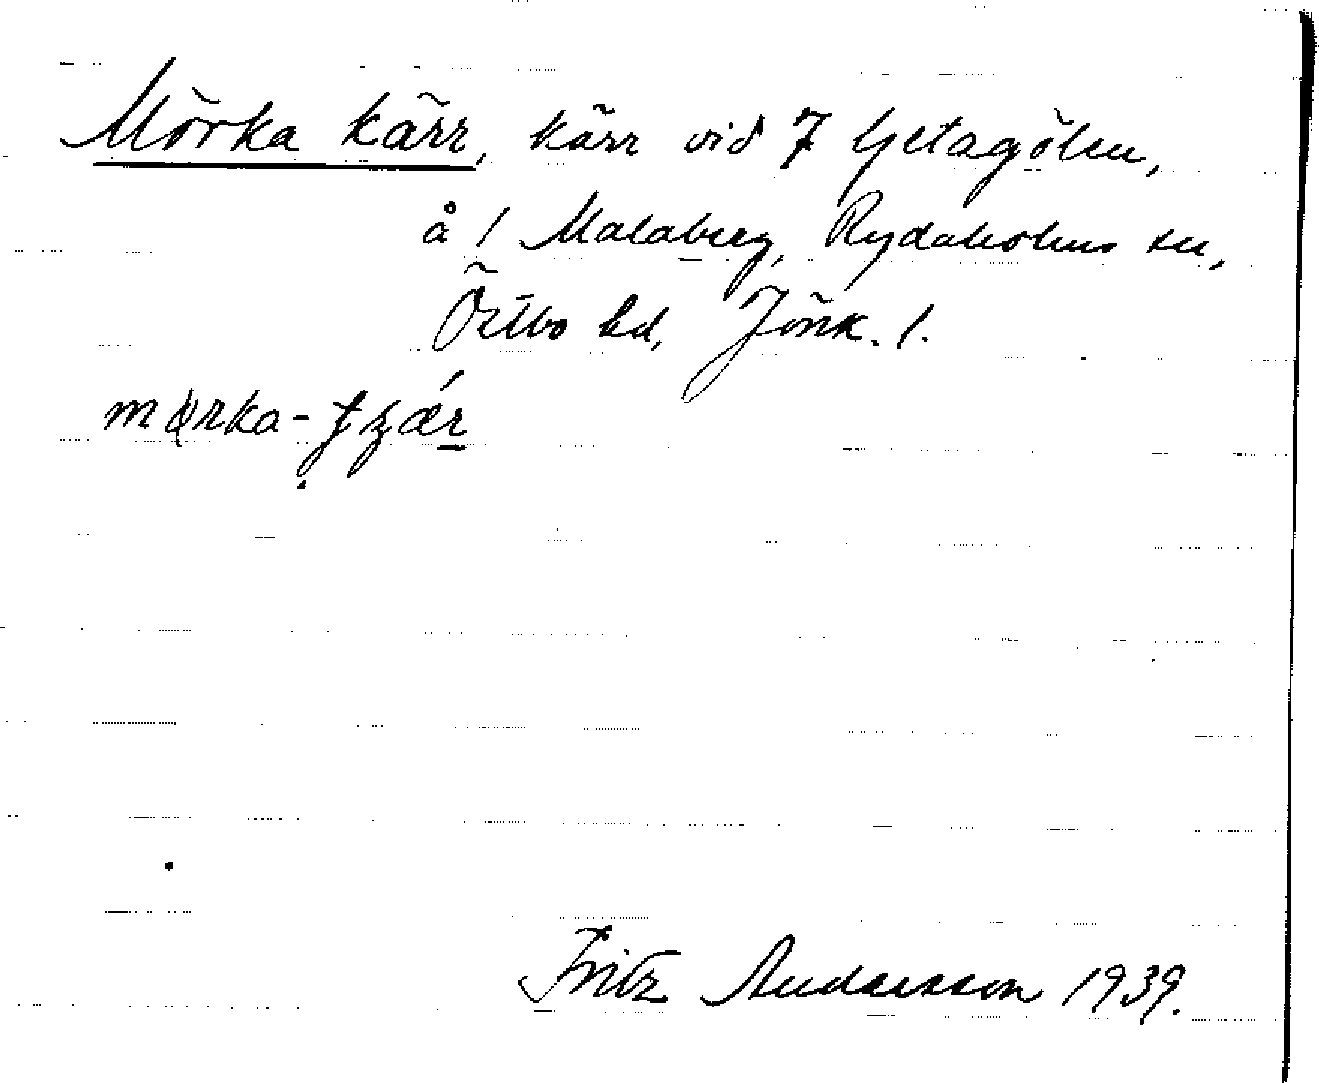 Mörka kärr, kärr vid 7 Getagölen,
å 1 Malaberg, Rydaholms sn,
Östbo hd, Jönk. l.
mørka-tʒǽr
Fritz Andersson 1939.